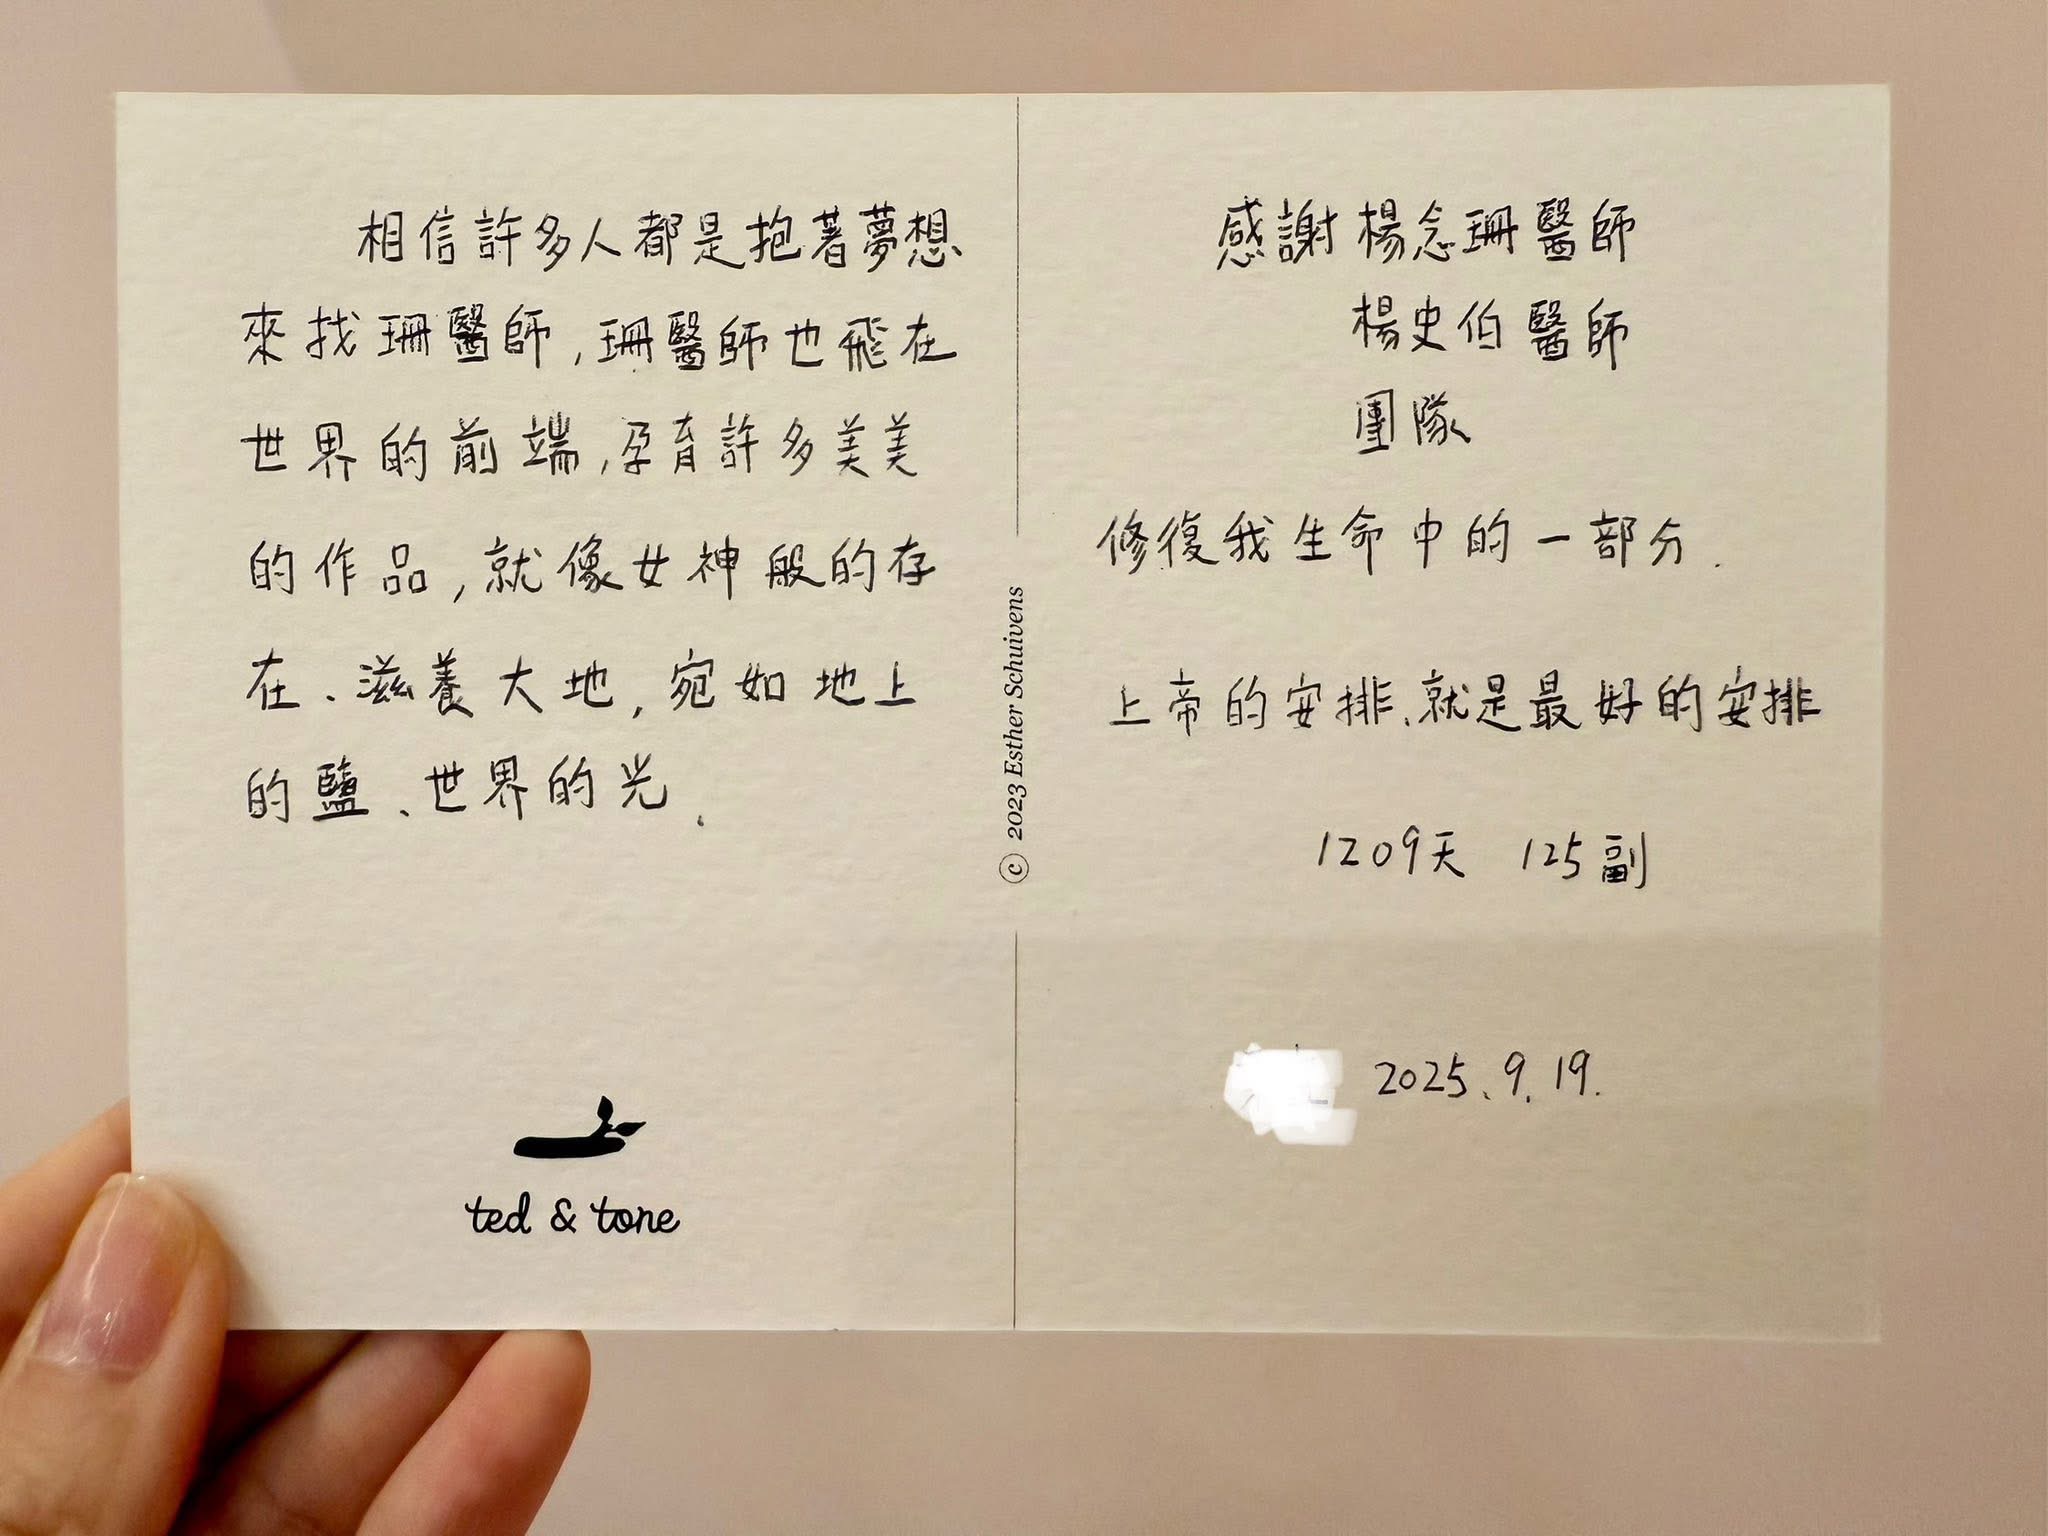 相信許多人都是抱著夢想
來找珊醫師,珊醫師也飛在
世界的前端,孕育許多美美
的作品,就像女神般的存
在、滋養大地,宛如地上
的鹽、世界的光.
ted & tone
© 2023 Esther Schuivens
感謝楊念珊醫師
楊史伯醫師
團隊
修復我生命中的一部分.
上帝的安排、就是最好的安排
1209天 125副
2025.9.19.